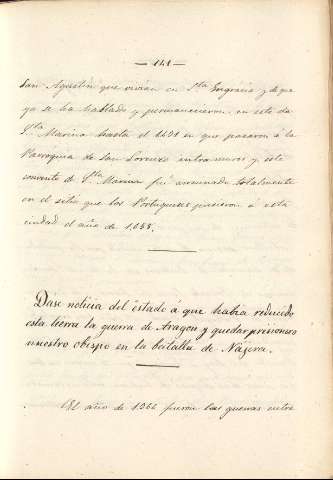 — 141 —
San Agustin que vivian en Sta Engracia y de que
ya se ha hablado y permanecieron en este de
Sta Marina hasta el 1431 en que pasaron á la
Parroquia de San Lorenzo extramuros y este
convento de Sta Marina fué arruinado totalmente
en el sitio que los Portugueses pusieron á esta
ciudad el año de 1.658.
Dase noticia del estado á que habia reducido
esta tierra la guerra de Aragon y quedar prisionero
nuestro obispo en la batalla de Nájera.
El año de 1366 fueron las guerras entre